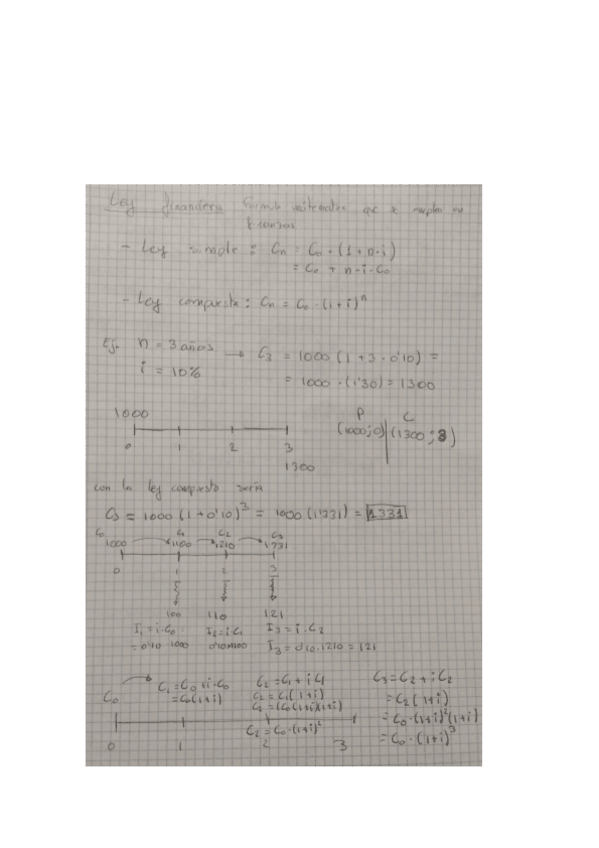 Ley financiera formula matematica que se emplea en
finanzas
- Ley simple : Cn = Co · (1 + n·i)
= Co + n·i·Co
- Ley compuesta : Cn = Co · (1+i)^n
Ej. n = 3 años → C3 = 1000 (1 + 3 · 0'10) =
i = 10% = 1000 · (1'30) = 1300
1000
0 1 2 3
1300
P C
(1000;0) (1300;3)
con la ley compuesta sería
C3 = 1000 (1+0'10)^3 = 1000 (1'331) = 1331
Co C1 C2 C3
1000 1100 1210 1331
0 1 2 3
100 110 121
I1 = i·Co I2 = i·C1 I3 = i·C2
= 0'10·1000 0'10·1100 I3 = 0'10·1210 = 121
Co C1 = Co + i·Co C2 = C1 + i C1 C3 = C2 + i C2
= Co(1+i) C2 = C1(1+i) = C2(1+i)
C2 = (Co(1+i)(1+i) = Co·(1+i)^2(1+i)
C2 = Co·(1+i)^2 = Co·(1+i)^3
0 1 2 3